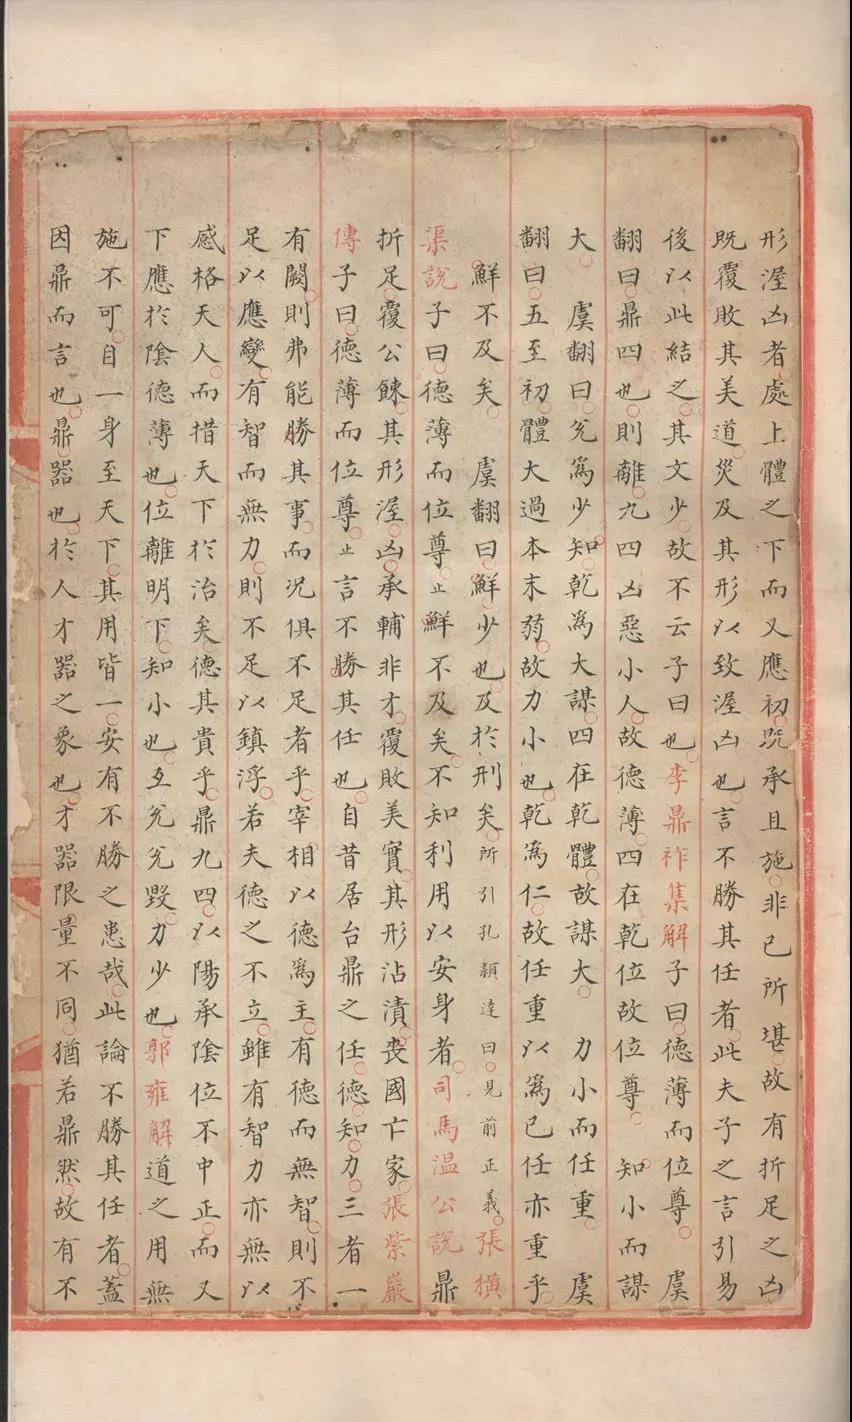 形渥凶者處上體之下而又應初既承且施非己所堪故有折足之凶
既覆敗其美道災及其形以致渥凶也言不勝其任者此夫子之言引易
後以此結之其文少故不云子曰也李鼎祚集解子曰德薄而位尊　虞
翻曰鼎四也則離九四凶惡小人故德薄四在乾位故位尊　知小而謀
大　虞翻曰兊為少知乾為大謀四在乾體故謀大　力小而任重　虞
翻曰五至初體大過本末弱故力小也乾為仁故任重以為己任亦重乎
鮮不及矣　虞翻曰鮮少也及於刑矣所引孔頴達曰見前正義張橫
渠說子曰德薄而位尊止鮮不及矣不知利用以安身者司馬溫公說鼎
折足覆公餗其形渥凶承輔非才覆敗美實其形沾漬喪國亡家張紫巖
傳子曰德薄而位尊止言不勝其任也自昔居台鼎之任德知力三者一
有闕則弗能勝其事而况俱不足者乎宰相以德為主有德而無智則不
足以應變有智而無力則不足以鎮浮若夫德之不立雖有智力亦無以
感格天人而措天下於治矣德其貴乎鼎九四以陽承陰位不中正而又
下應於陰德薄也位離明下知小也互兊兊毀力少也郭雍解道之用無
施不可自一身至天下其用皆一安有不勝之患哉此論不勝其任者蓋
因鼎而言也鼎器也於人才器之象也才器限量不同猶若鼎然故有不